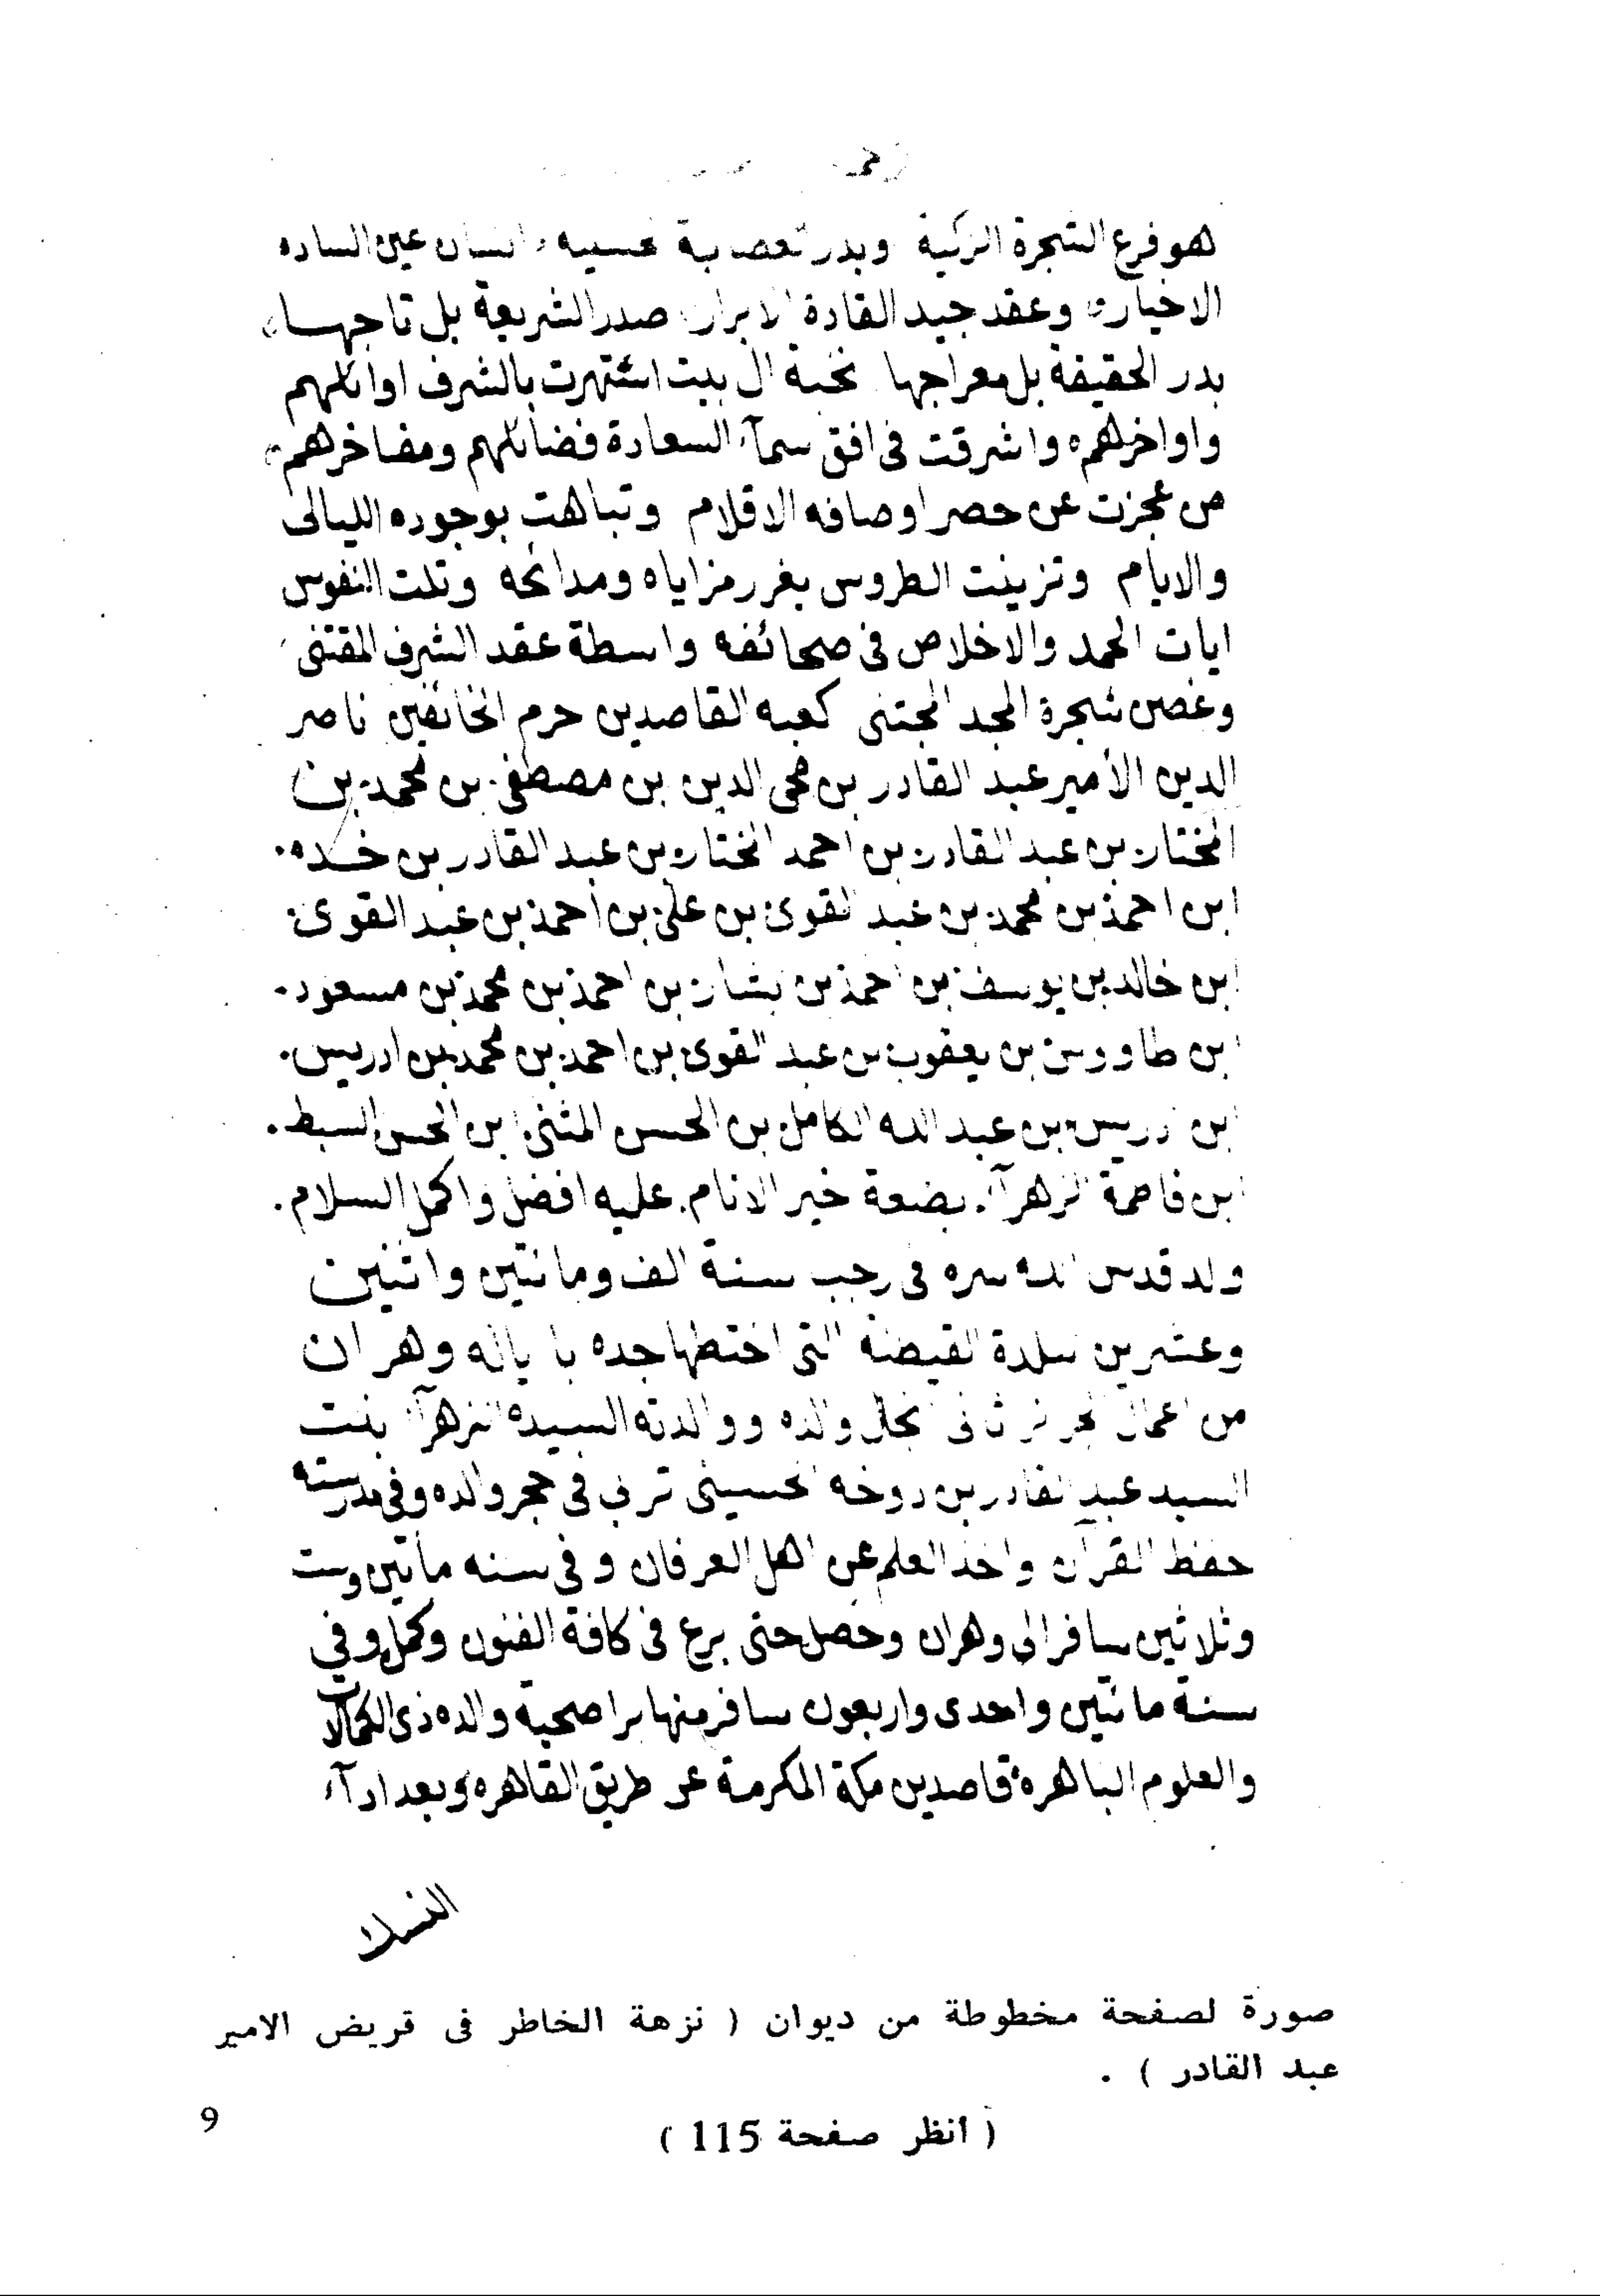 هو فرع الشجرة الزكية وبدر العصابة الحسنيه انسان عين الساده
الاخيار وعقد جيد القادة الابرار صدر الشريعة بل تاجها
بدر الحقيقة بل معراجها نخبة ال بيت اشتهرت بالشرف اوائلهم
واواخرهم واشرقت فى افق سمآء السعادة فضائلهم ومفاخرهم
من عجزت عن حصر اوصافه الاقلام وتباهت بوجوده الليالى
والايام وتزينت الطروس بغرر مزاياه ومدائحه وتلت النفوس
ايات الحمد والاخلاص فى صحائفه واسطة عقد الشرف المقتنى
وغصن شجرة المجد المجتنى كعبه القاصدين حرم الخائفين ناصر
الدين الأمير عبد القادر بن محى الدين بن مصطفى بن محمد بن
المختار بن عبد القادر بن احمد المختار بن عبد القادر بن خده
ابن احمد بن محمد بن عبد القوى بن على بن احمد بن عبد القوى
ابن خالد بن يوسف بن احمد بن بشار بن احمد بن محمد بن مسعود
ابن طاووس بن يعقوب بن عبد القوى بن احمد بن محمد بن ادريس
ابن ادريس بن عبد الله الكامل بن الحسن المثنى ابن الحسن السبط
ابن فاطمة الزهرآء بضعة خير الانام عليه افضل واكمل السلام
ولد قدس الله سره فى رجب سنة الف ومائتين واثنين
وعشرين ببلدة القيطنه التى اختطها جده با يالة وهران
من اعمال الجزائر ثانى انجال والده ووالدته السيده الزهرآء بنت
السيد عبد القادر بن دوخه الحسينى تربى فى حجر والده وفى مدرسته
حفظ القرآن واخذ العلم عن اهل العرفان وفى سنه مأتين وست
وثلاثين سافر الى وهران وحصل حتى برع فى كافة الفنون وكمل وفي
سنة مائتين واحدى واربعون سافر منها برا صحبة والده ذى الكمالات
والعلوم الباهرة قاصدين مكة المكرمة عن طريق القاهره وبعد ادآء
صورة لصفحة مخطوطة من ديوان ( نزهة الخاطر فى قريض الامير
عبد القادر ) .
( انظر صفحة 115 )
9